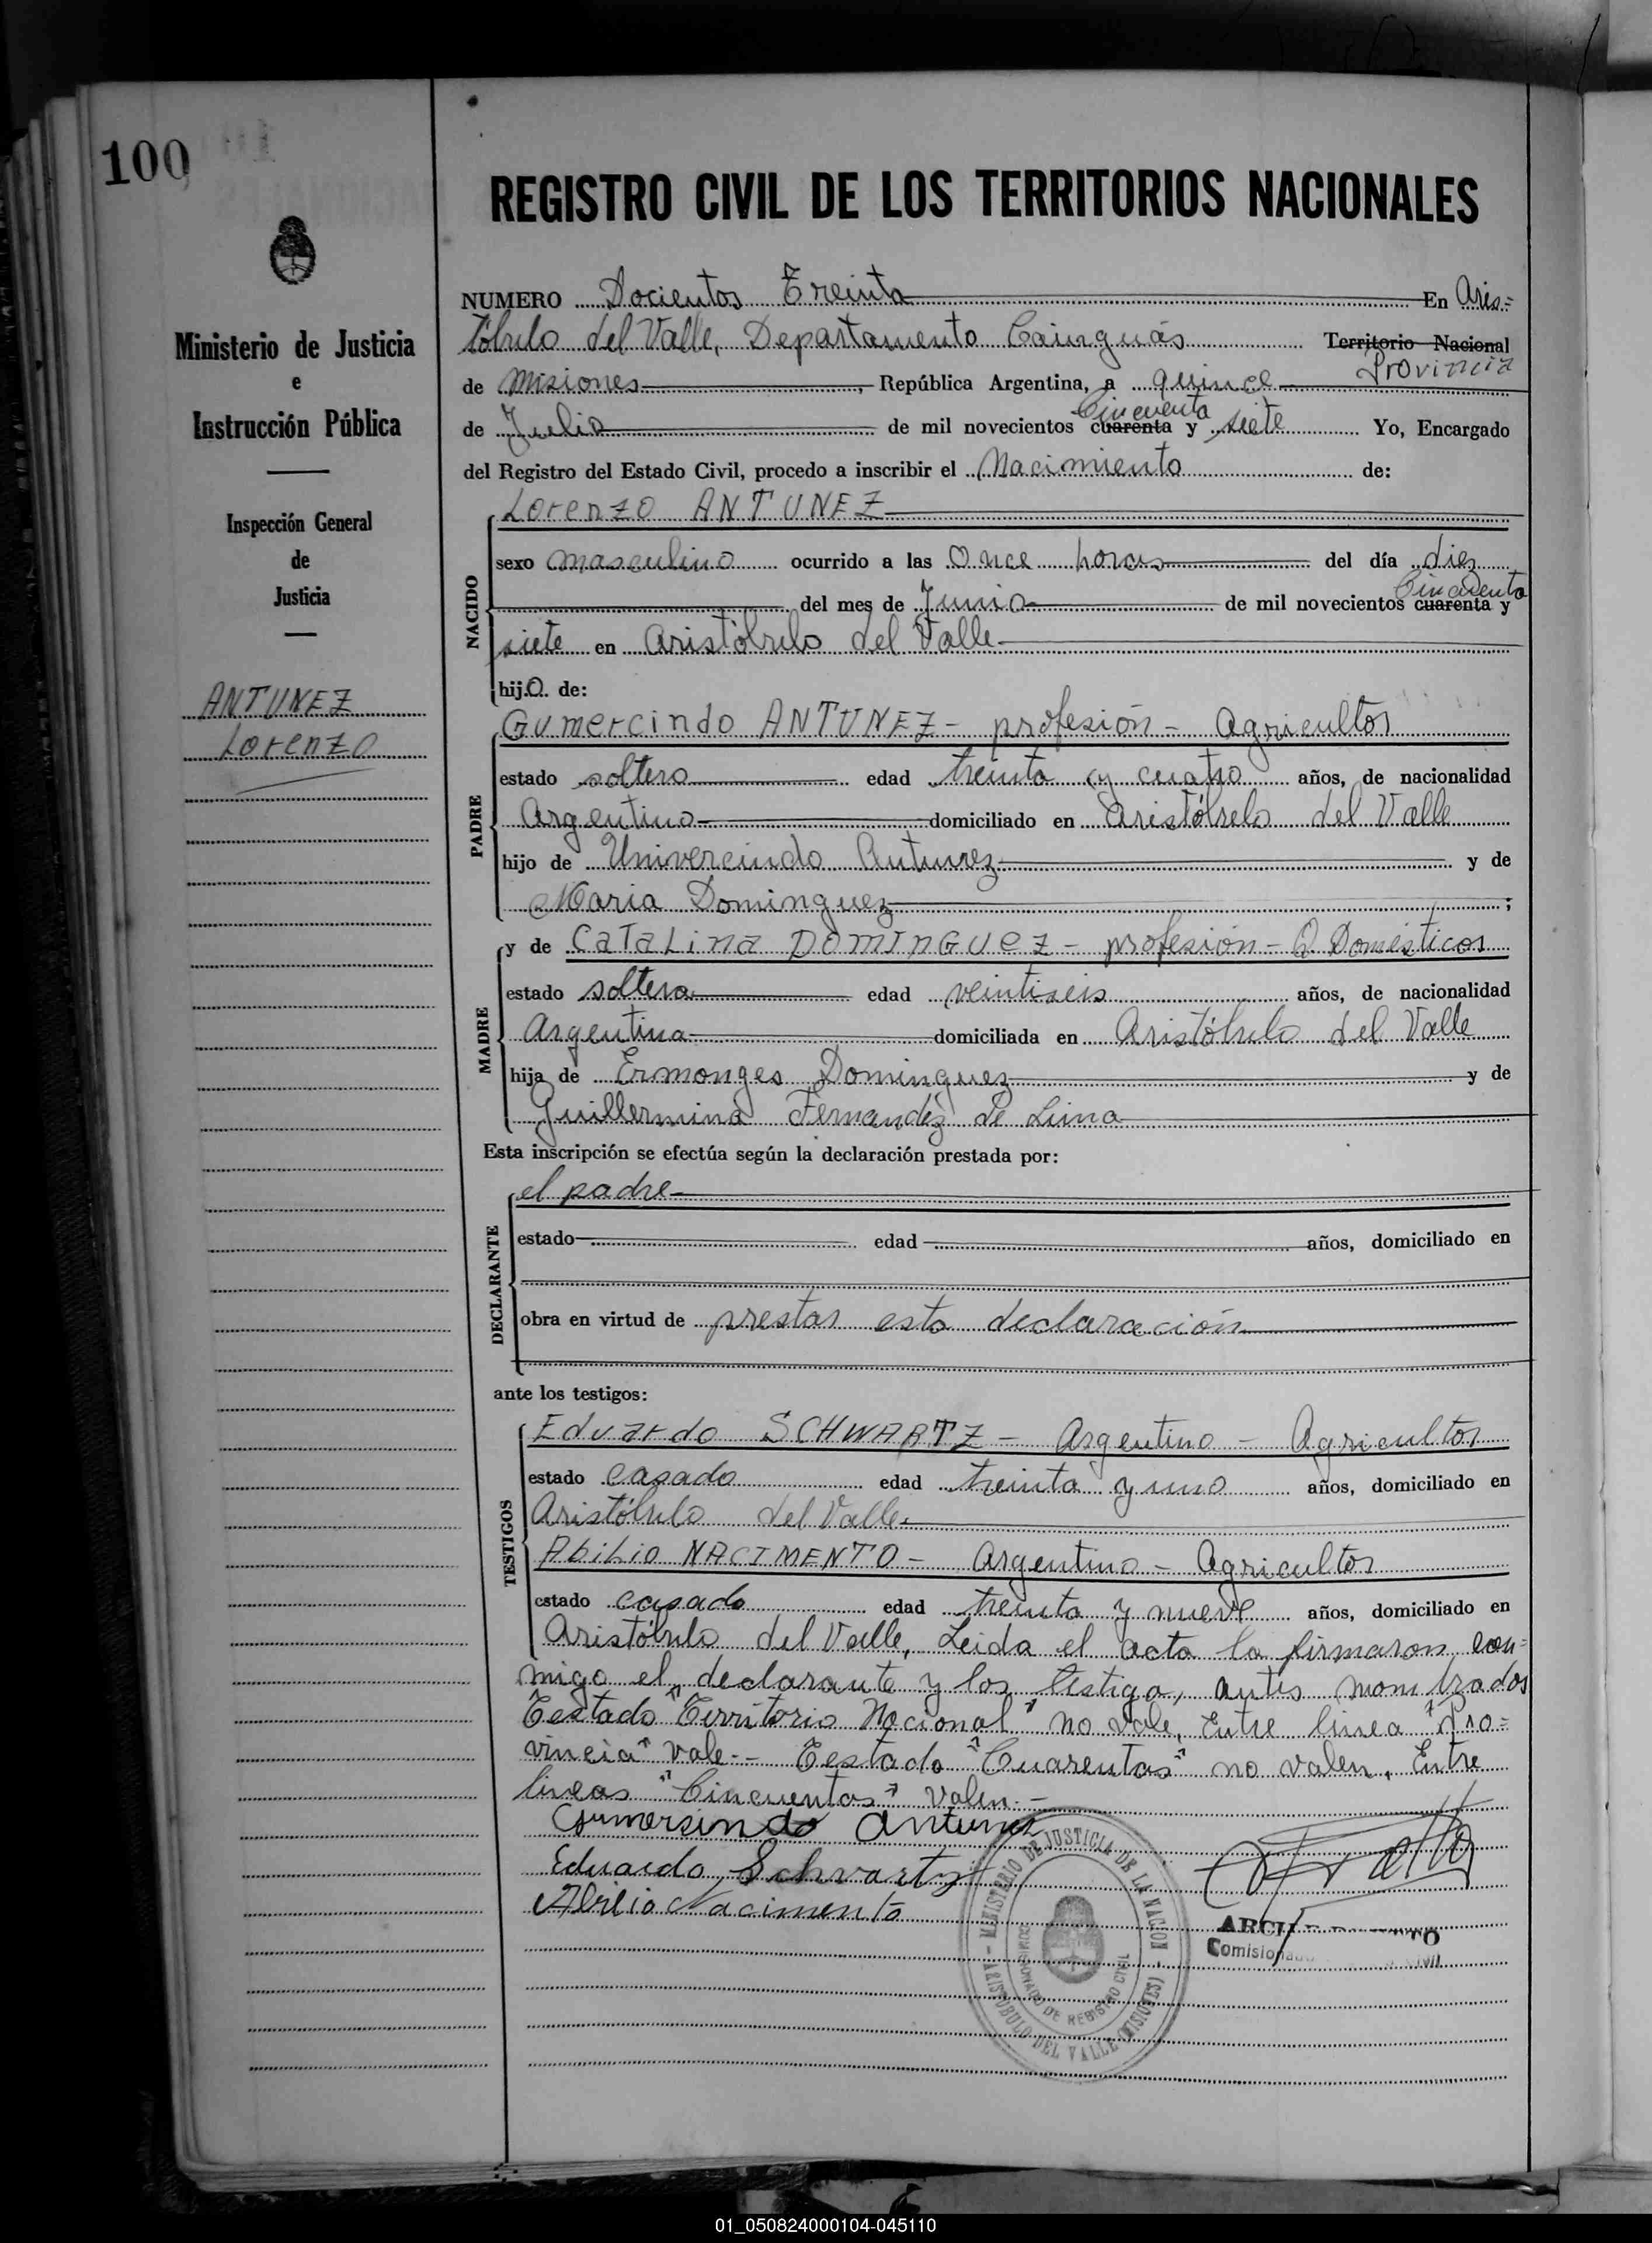 100
Ministerio de Justicia
e
Instrucción Pública
Inspección General
de
Justicia
ANTUNEZ
Lorenzo
REGISTRO CIVIL DE LOS TERRITORIOS NACIONALES
NUMERO Docientos Treinta En Aris=
tóbulo del Valle, Departamento Cainguás Territorio Nacional
Provincia
de Misiones, República Argentina, a quince
Cincuenta
de Julio de mil novecientos cuarenta y siete Yo, Encargado
del Registro del Estado Civil, procedo a inscribir el Nacimiento de:
NACIDO
Lorenzo ANTUNEZ
sexo masculino ocurrido a las Once horas del día diez
Cincuenta
del mes de Junio de mil novecientos cuarenta y
siete en Aristóbulo del Valle
hijo de:
PADRE
Gumercindo ANTUNEZ - profesión - Agricultor
estado soltero edad treinta y cuatro años, de nacionalidad
Argentino domiciliado en Aristóbulo del Valle
hijo de Univercindo Antunez y de
Maria Dominguez ;
MADRE
y de CATALINA DOMINGUEZ - profesión - Q. Domésticos
estado soltera edad veintiseis años, de nacionalidad
Argentina domiciliada en Aristóbulo del Valle
hija de Ermonges Dominguez y de
Guillermina Fernandez de Lima
Esta inscripción se efectúa según la declaración prestada por:
DECLARANTE
el padre
estado edad años, domiciliado en
obra en virtud de prestar esta declaración
ante los testigos:
TESTIGOS
Eduardo SCHWARTZ - Argentino - Agricultor
estado casado edad treinta y uno años, domiciliado en
Aristóbulo del Valle
Abilio NACIMENTO - Argentino - Agricultor
estado casado edad treinta y nueve años, domiciliado en
Aristóbulo del Valle, Leida el acta la firmaron con=
migo el declarante y los testigo, antes mom
Testado "Territorio Nacional" no vale, Entre linea "Pro=
vincia" vale-- Testado "Cuarentas" no valen, Entre
lineas "Cincuentas" Valen.-
Gumersindo Antunez
Eduardo Schvartz
Abilio Nacimento
MINISTERIO DE JUSTICIA DE LA NACION
COMISIONADO DE REGISTRO CIVIL
ARISTOBULO DEL VALLE (MISIONES)
Comisionado
01_050824000104-045110